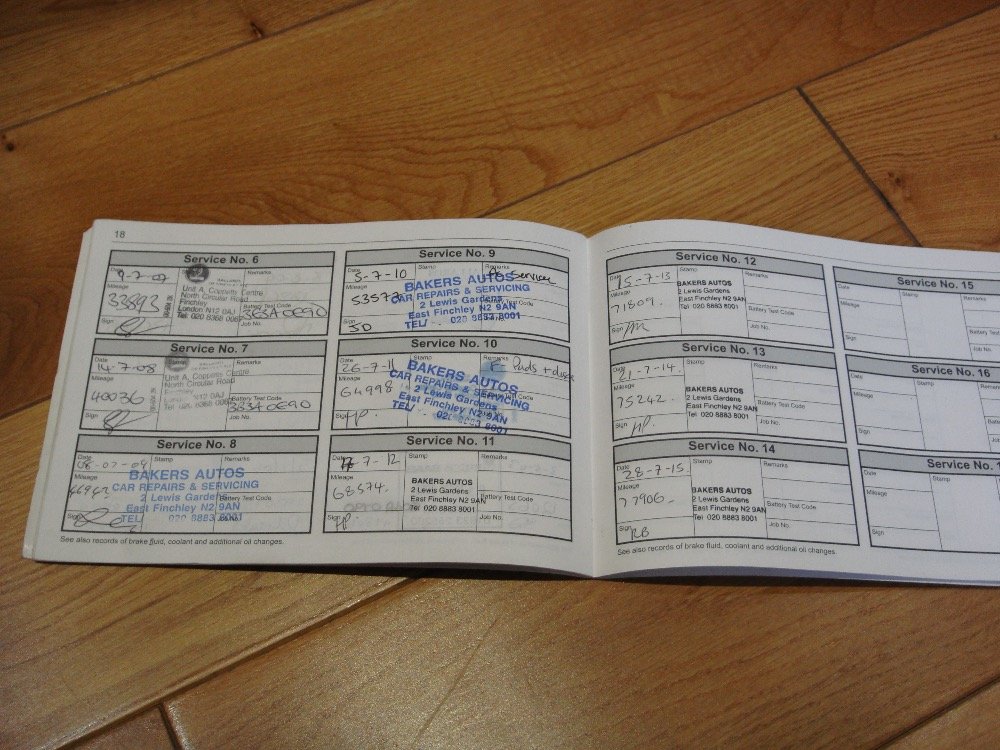 18
Service No. 6
Date Stamp Remarks
9-7-07
Mileage
33893
Unit A, Coppetts Centre
North Circular Road
Finchley
London N12 0AJ
Battery Test Code
383A0E90
Job No.
Sign
Service No. 7
Date Stamp Remarks
14-7-08
Mileage
40036
Unit A, Coppetts Centre
North Circular Road
Finchley
Battery Test Code
383A0E90
Job No.
Sign
Service No. 8
Mileage
BAKERS AUTOS
CAR REPAIRS & SERVICING
2 Lewis Gardens
East Finchley N2 9AN
TEL: 020 8883 8001
Battery Test Code
Job No.
Sign
See also records of brake fluid, coolant and additional oil changes.
Service No. 9
Date Stamp Remarks
5-7-10 Service
Mileage
53573
BAKERS AUTOS
CAR REPAIRS & SERVICING
2 Lewis Gardens
East Finchley N2 9AN
TEL: 020 8883 8001
Sign
JD
Service No. 10
Date Stamp Remarks
26-7-11 F Pads + discs
Mileage
64998
BAKERS AUTOS
CAR REPAIRS & SERVICING
2 Lewis Gardens
East Finchley N2 9AN
TEL: 020 8883 8001
Sign
Service No. 11
Date Stamp Remarks
7-12
Mileage
68574.
BAKERS AUTOS
2 Lewis Gardens
East Finchley N2 9AN
Tel: 020 8883 8001
Battery Test Code
Job No.
Sign
Service No. 12
Date Stamp Remarks
15-7-13
Mileage
71809.
BAKERS AUTOS
2 Lewis Gardens
East Finchley N2 9AN
Tel: 020 8883 8001
Battery Test Code
Job No.
Sign
Service No. 13
Date Stamp Remarks
21-7-14.
Mileage
75242.
BAKERS AUTOS
2 Lewis Gardens
East Finchley N2 9AN
Tel: 020 8883 8001
Battery Test Code
Job No.
Sign
Service No. 14
Date Stamp Remarks
28-7-15.
Mileage
77906-
BAKERS AUTOS
2 Lewis Gardens
East Finchley N2 9AN
Tel: 020 8883 8001
Battery Test Code
Job No.
Sign
RB
See also records of brake fluid, coolant and additional oil changes.
Service No. 15
Date Stamp
Mileage
Battery Test Code
Job No.
Sign
Service No. 16
Date Stamp
Mileage
Battery Test Code
Job No.
Sign
Service No.
Date Stamp
Mileage
Sign